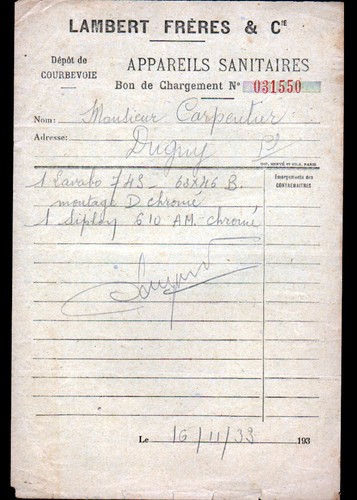 LAMBERT FRÈRES & Cie
Dépôt de COURBEVOIE
APPAREILS SANITAIRES
Bon de Chargement No 031550
Nom: Monsieur Carpentier
Adresse: Dugny
IMP. HERVÉ ET FILS, PARIS
Emargements des CONTREMAITRES
1 Lavabo 743 - 63x46 B.
montage D chromé
1 siphoy 610 AM. chromé
Le 16/11/33 193